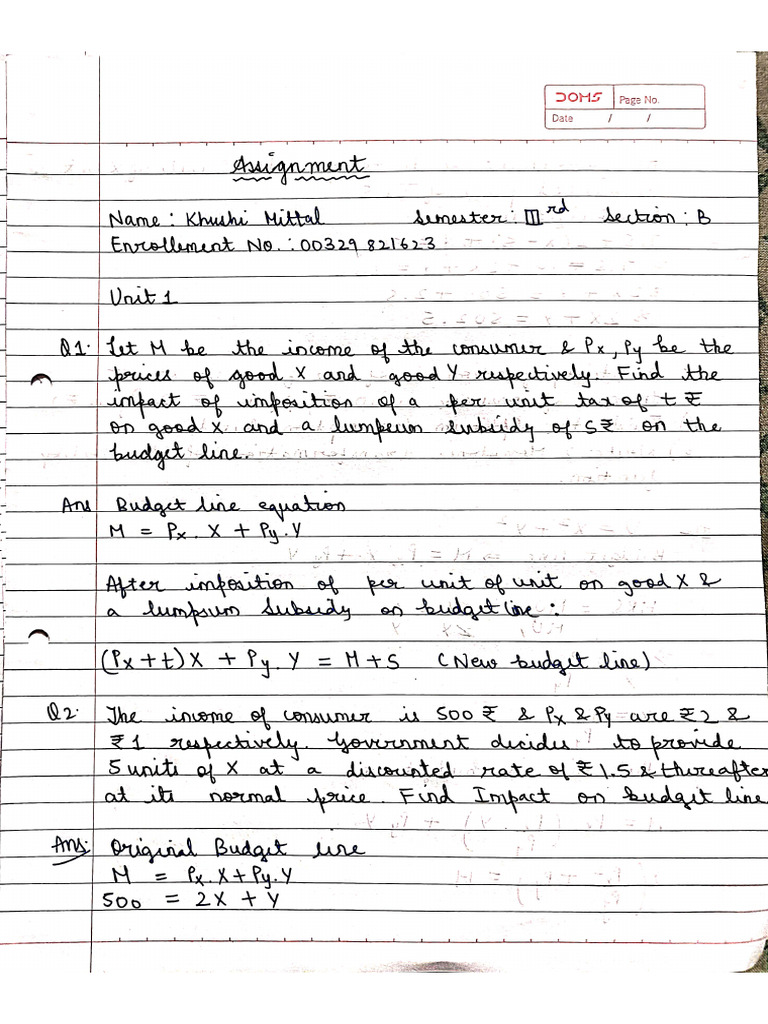 DOMS Page No.
Date / /
Assignment
Name : Khushi Mittal Semester : III rd Section : B
Enrollement No. : 00329821623
Unit 1
Q1. Let M be the income of the consumer & Px, Py be the
prices of good X and good Y respectively. Find the
impact of imposition of a per unit tax of t ₹
on good X and a lumpsum subsidy of S₹ on the
budget line.
Ans Budget line equation
M = Px. X + Py. Y
After imposition of per unit of unit on good X &
a lumpsum subsidy on budget line :
(Px + t) X + Py. Y = M + S (New budget line)
Q2. The income of consumer is 500 ₹ & Px & Py are ₹2 &
₹1 respectively. Government decides to provide
5 units of X at a discounted rate of ₹1.5 & thereafter
at its normal price. Find Impact on budget line
Ans: Original Budget line
M = Px. X + Py. Y
500 = 2X + Y